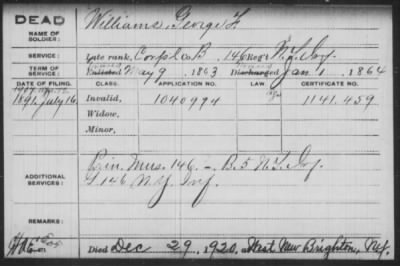 DEAD
NAME OF SOLDIER:
Williams, George F.
SERVICE:
Late rank, Corpl Co. B, 146 Reg't N.Y. Inf.
TERM OF SERVICE:
Enlisted May 9, 1863 Discharged Jan 1, 1864
DATE OF FILING. CLASS. APPLICATION NO. LAW. CERTIFICATE NO.
1891, July 16 Invalid, 1040994 1141.459
Widow,
Minor,
ADDITIONAL SERVICES:
Mus. 146 - B. 5 N.Y. Inf.
146 N.Y. Inf.
REMARKS:
Died Dec 29, 1920, at West New Brighton, N.Y.